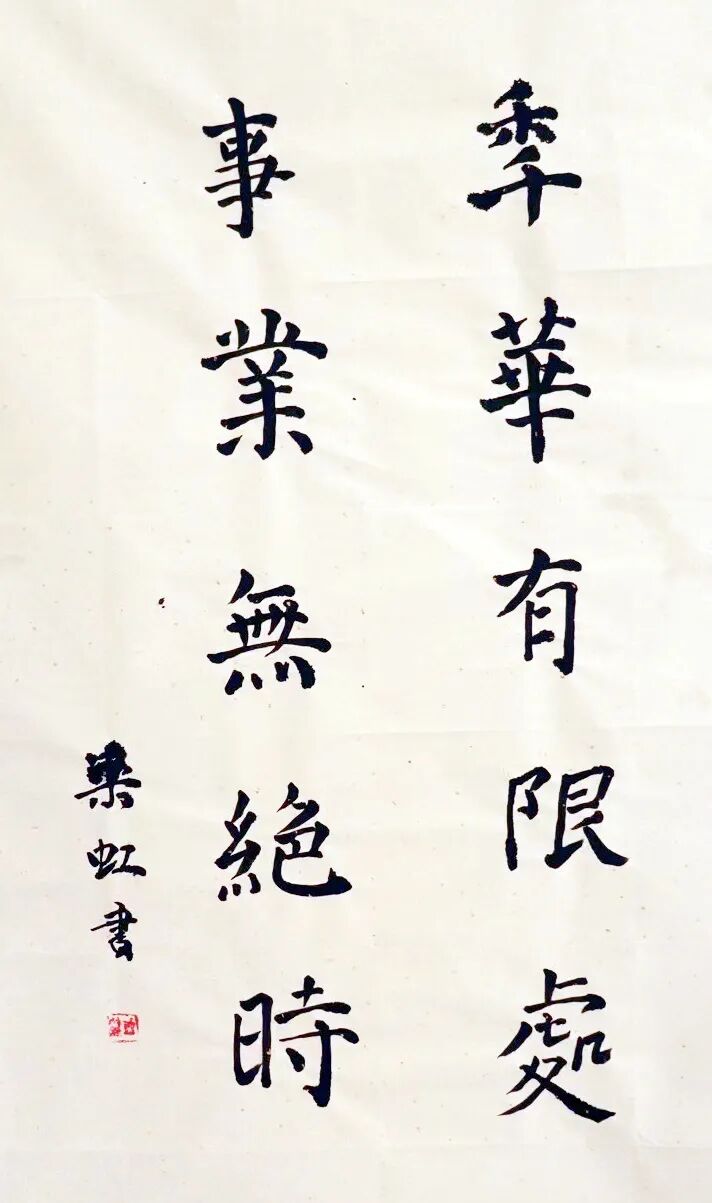 秊華有限處
事業無絕時
樂虹書